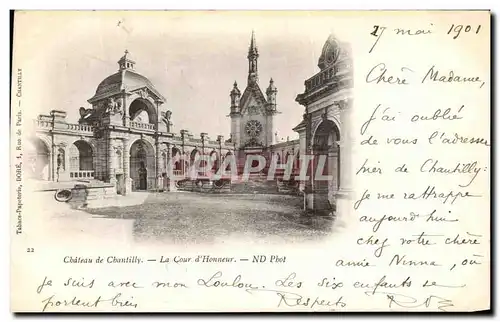 27 mai 1901
Chère Madame,
J'ai oublié
de vous l'adresser
hier de Chantilly:
je me rattrappe
aujourd'hui
chez votre chère
amie Ninna, où
je suis avec mon Loulou. Les six enfants se
portent bien
Respects
Tabacs-Papeterie, DORÉ, 4, Rue de Paris. — CHANTILLY
DELCAMPE
22
Château de Chantilly. — La Cour d'Honneur. — ND Phot